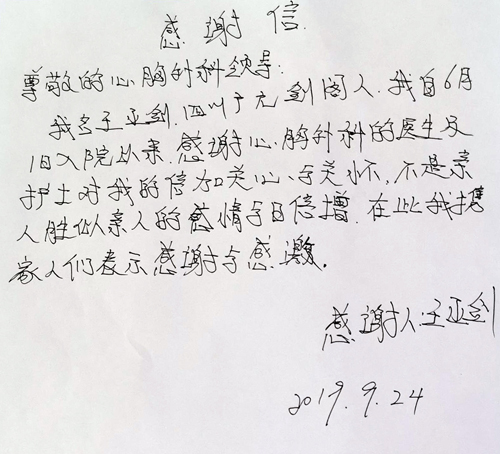 感谢信
尊敬的心胸外科领导:
我名王亚剑.四川广元剑阁人.我自6月
1日入院以来.感谢心胸外科的医生及
护士对我的倍加关心与关怀.不是亲
人胜似亲人的感情与日倍增.在此我携
家人们表示感谢与感激.
感谢人:王亚剑
2019.9.24